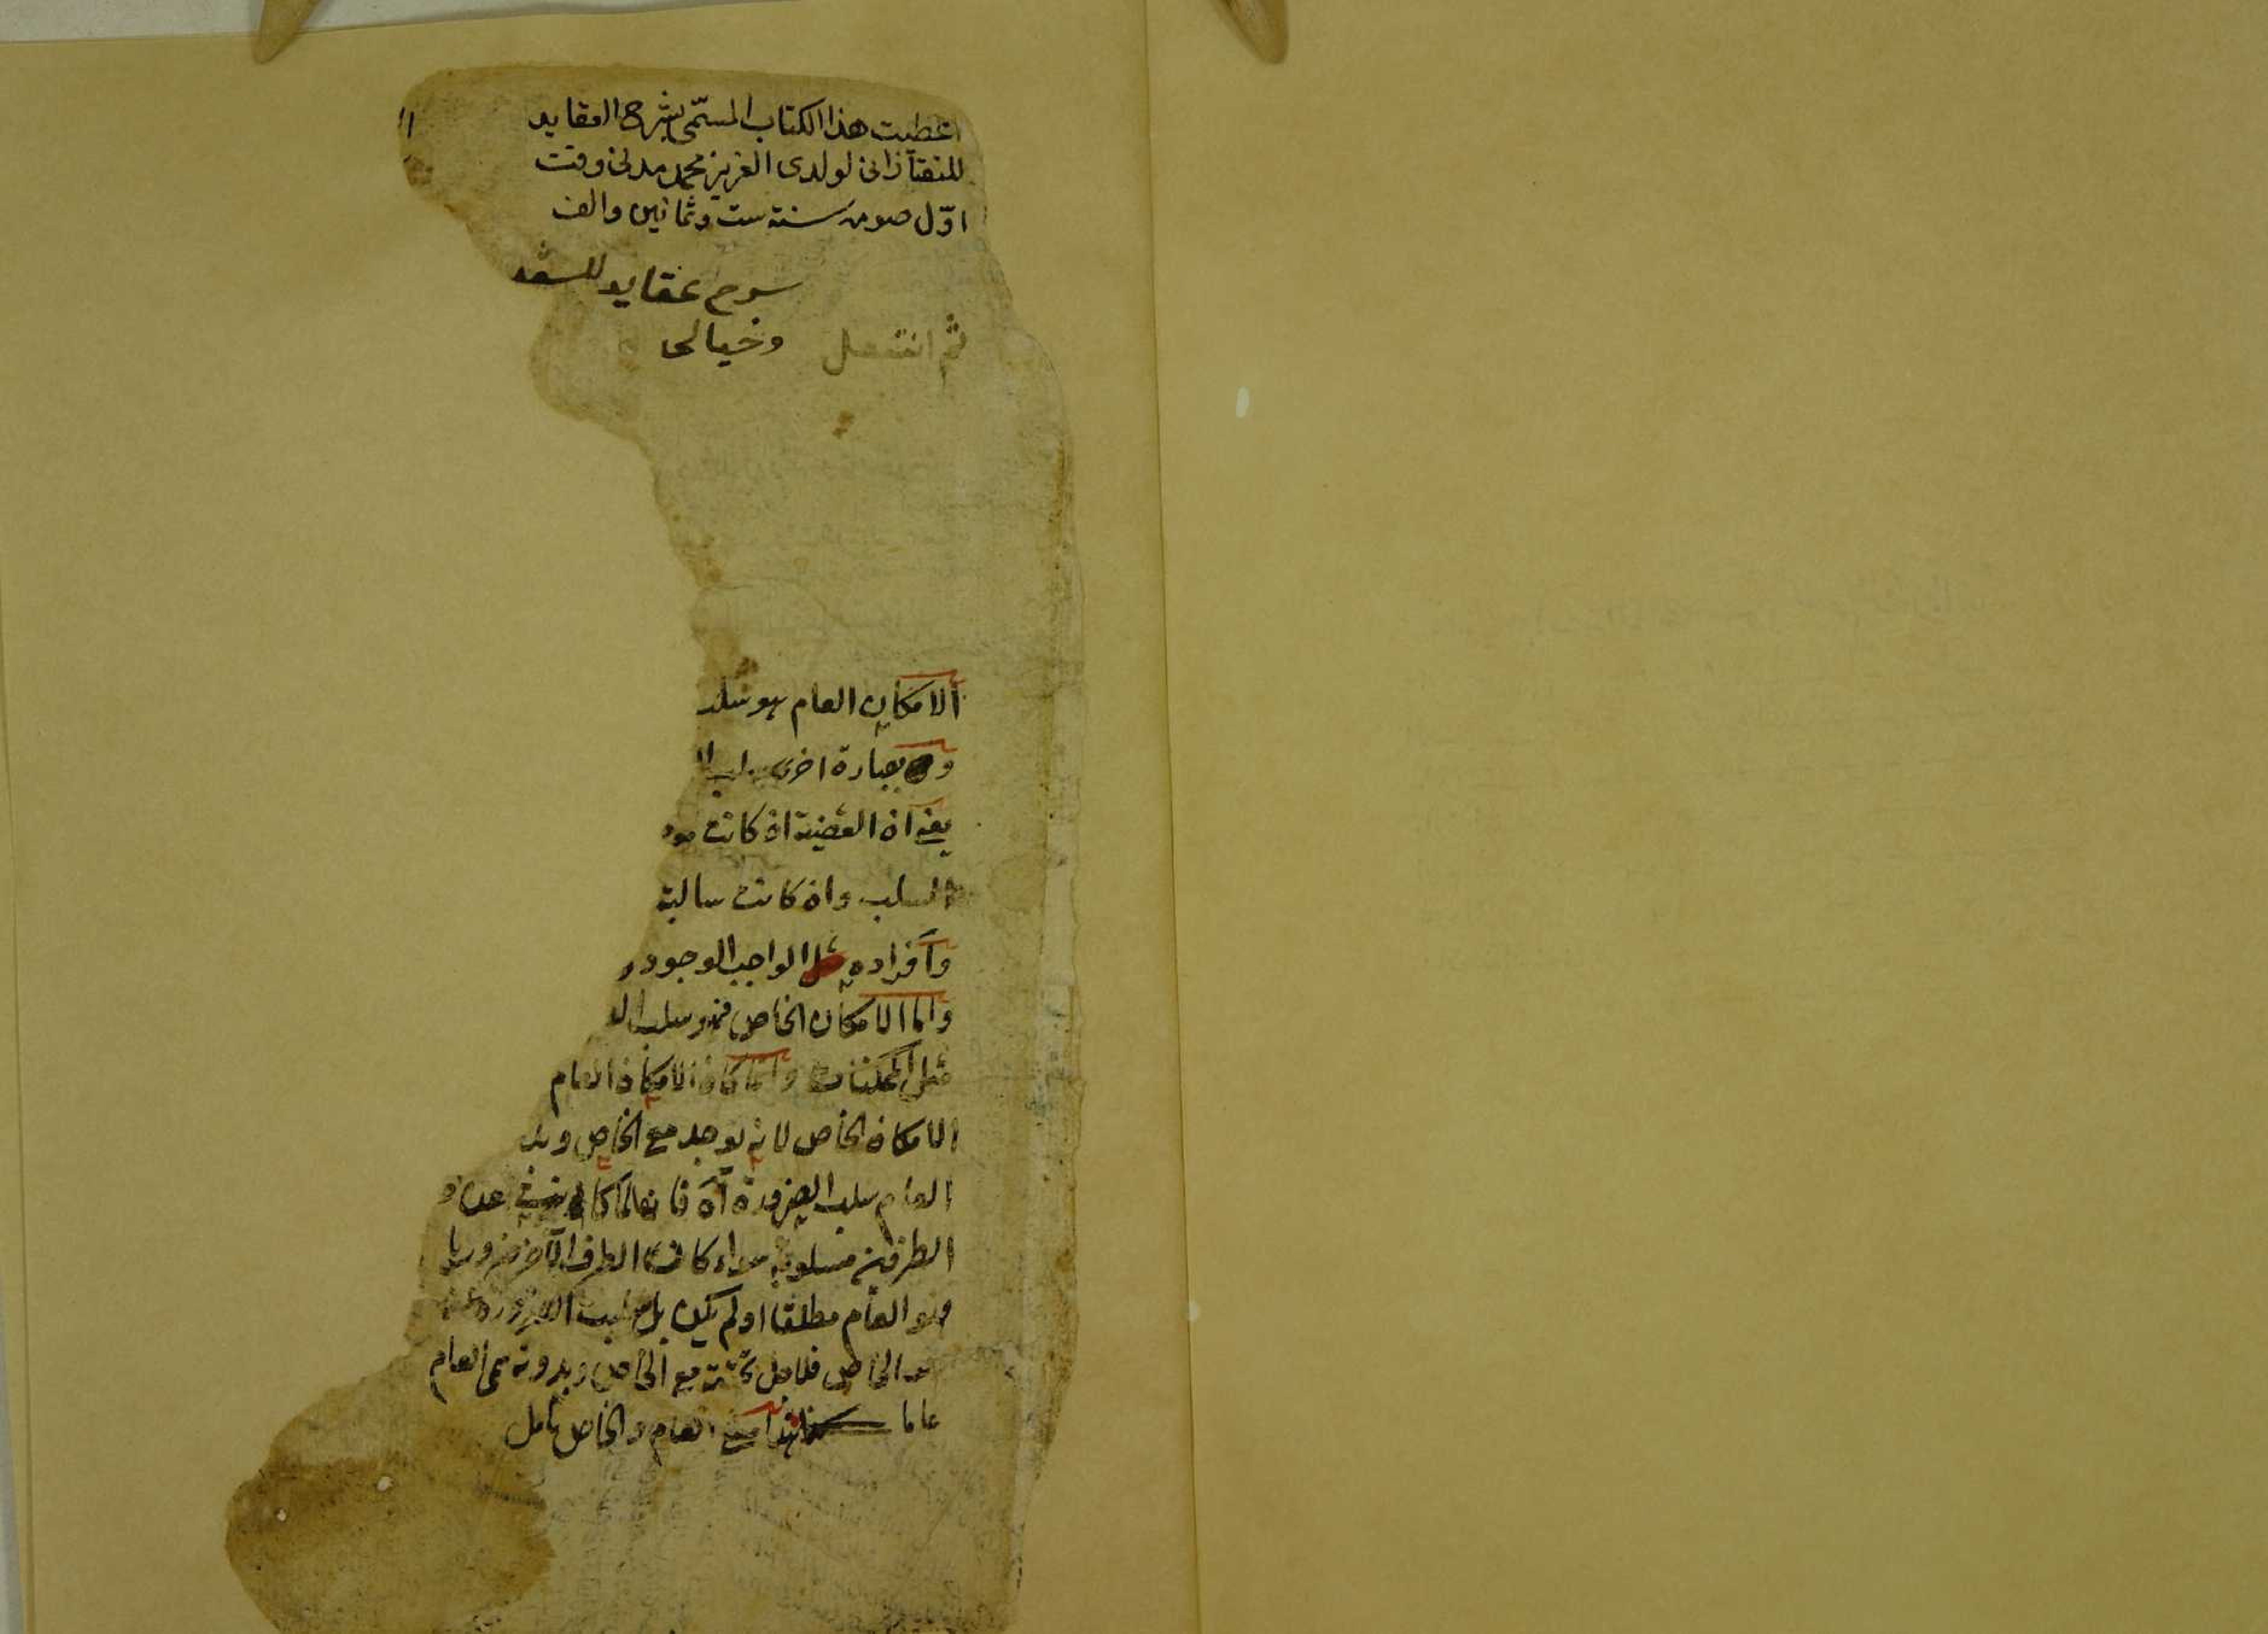 اعطيت هذا الكتاب المسمّى بشرح العقايد
للتفتازانى لولدى العزيز محمد مدنى وقت
اوّل صوم سنة ست وثمانين والف
شرح عقايد للسعد
وخيالى
ثم انتقل
الامكان العام هو سلب
وبعبارة اخرى سلب ا
يعنى ان القضية ان كانت مو
السلب وان كانت سالبة
وافراده مثل الواجب الوجود و
واما الامكان الخاص فهو سلب ال
مثل الممكنات وانما كان الامكان العام
الامكان الخاص لانه يوجد مع الخاص وبد
العام سلب الضرورة اه فانهالما كان عن
الطرفين مسلوبة سواء كان الطرف الآخر ضروريا
وهو العام مطلقا او لم يكن بل سلبت الضرورة
الخاص فلاجل مع الخاص وبدونه سمى العام
عاما العام والخاص تأمل